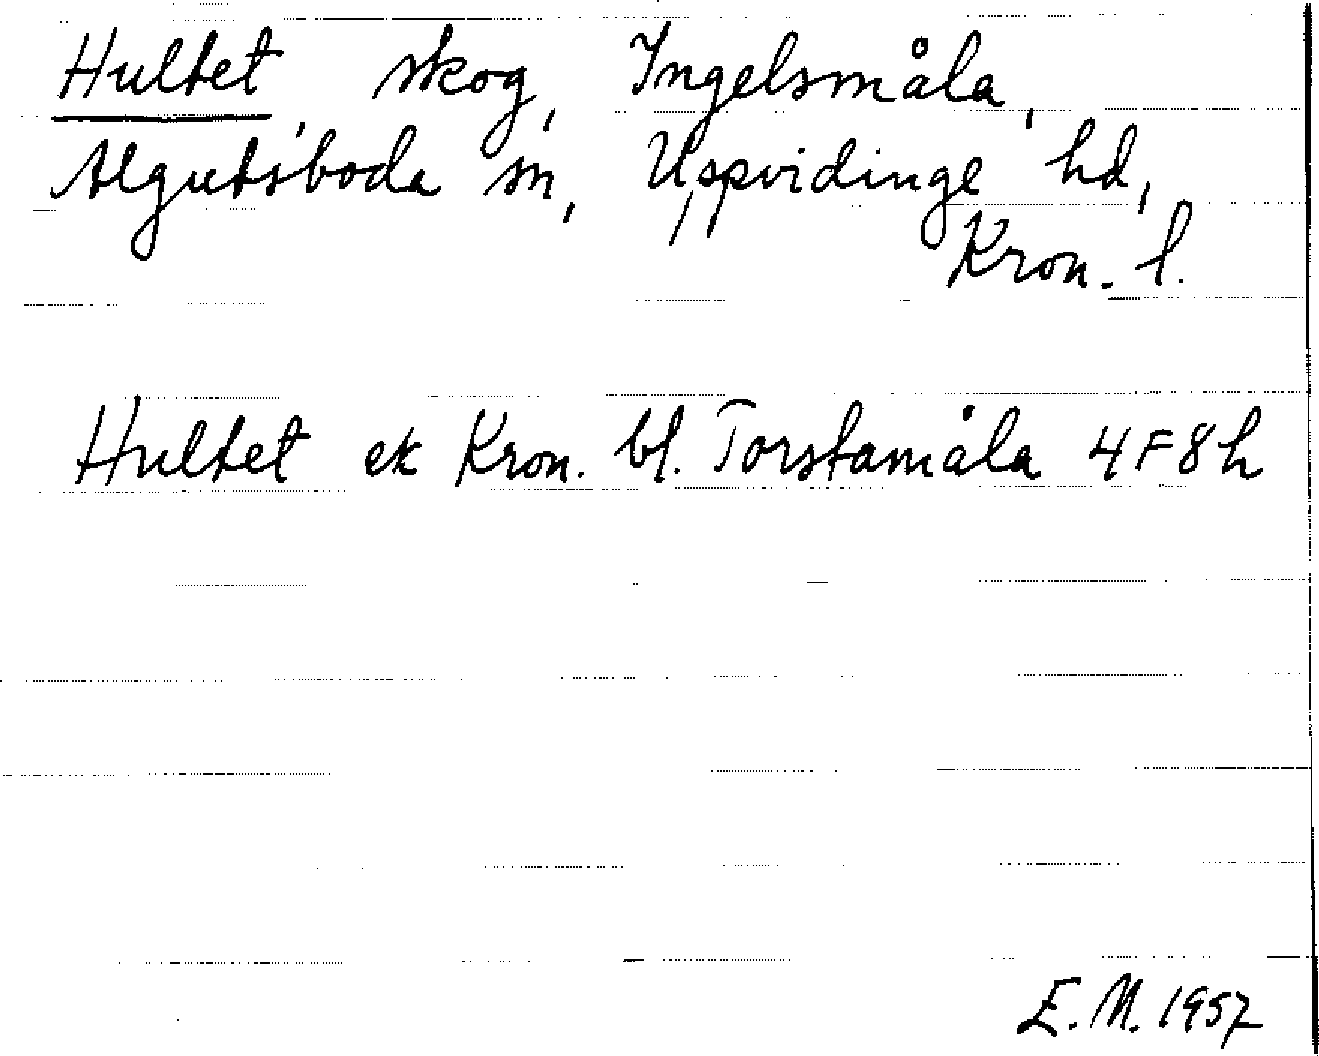 Hultet, skog, Ingelsmåla,
Algutsboda sn, Uppvidinge hd,
Kron. l.
Hultet ek Kron. bl. Torstamåla 4F8h
E.M. 1957